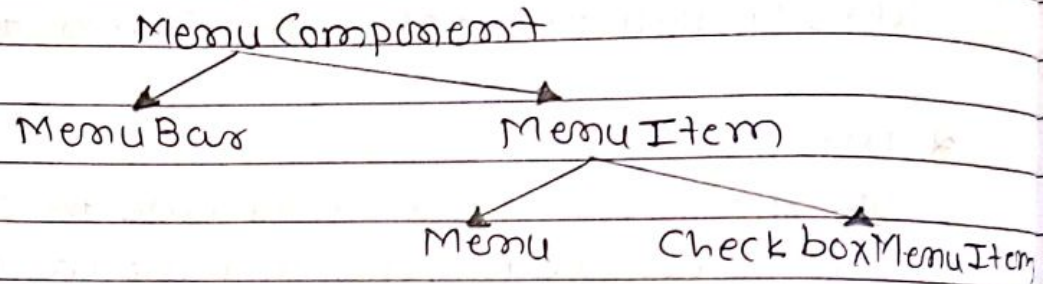 Menu Component
MenuBar MenuItem
Menu Check boxMenuItem